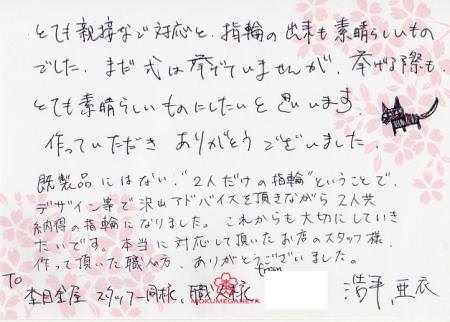 とても親接なご対応と、指輪の出来も素晴らしいもの
でした。まだ式は挙げていませんが、挙げる際も
とても素晴らしいものにしたいと思います。
作っていただき ありがとう ございました。
既製品にはない、"2人だけの指輪"ということで、
デザイン等で沢山アドバイスを頂きながら 2人共
納得の指輪になりました。これからも大切にしていき
たいです。本当に対応して頂いたお店のスタッフ様、
作って頂いた職人の方、ありがとうございました。
To 杢目金屋 スタッフ一同様、職人様
MOKUMEGANEYA
from
浩平 亜衣